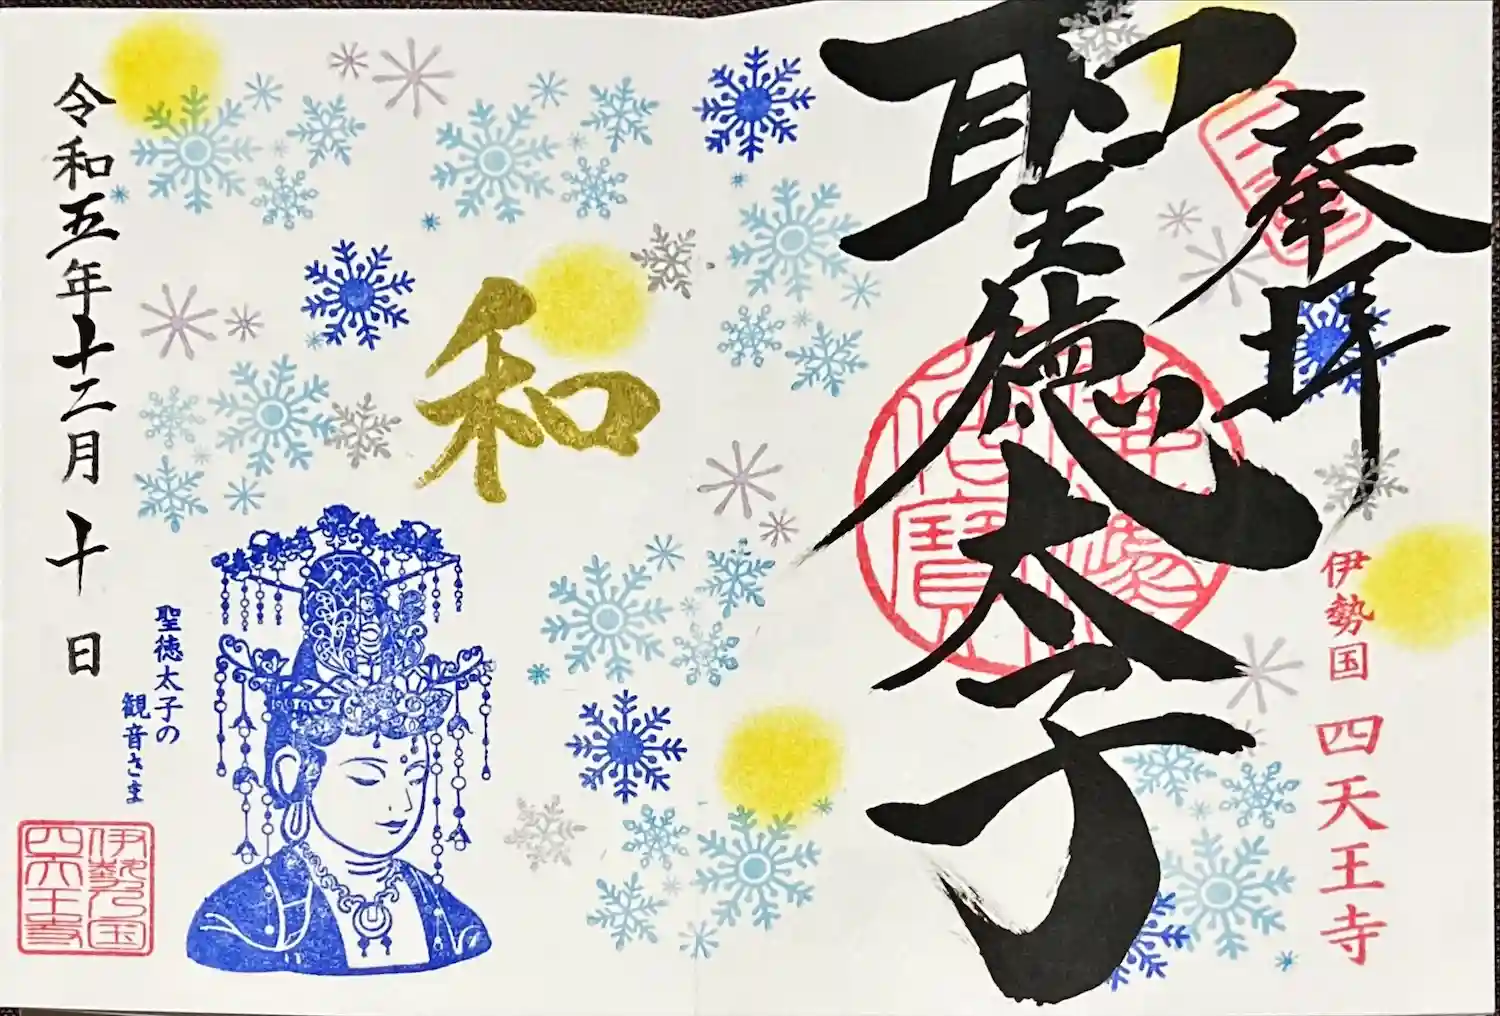 奉拝
聖徳太子
伊勢国 四天王寺
和
聖徳太子の
観音さま
令和五年十二月十日
伊勢乃国
四天王寺